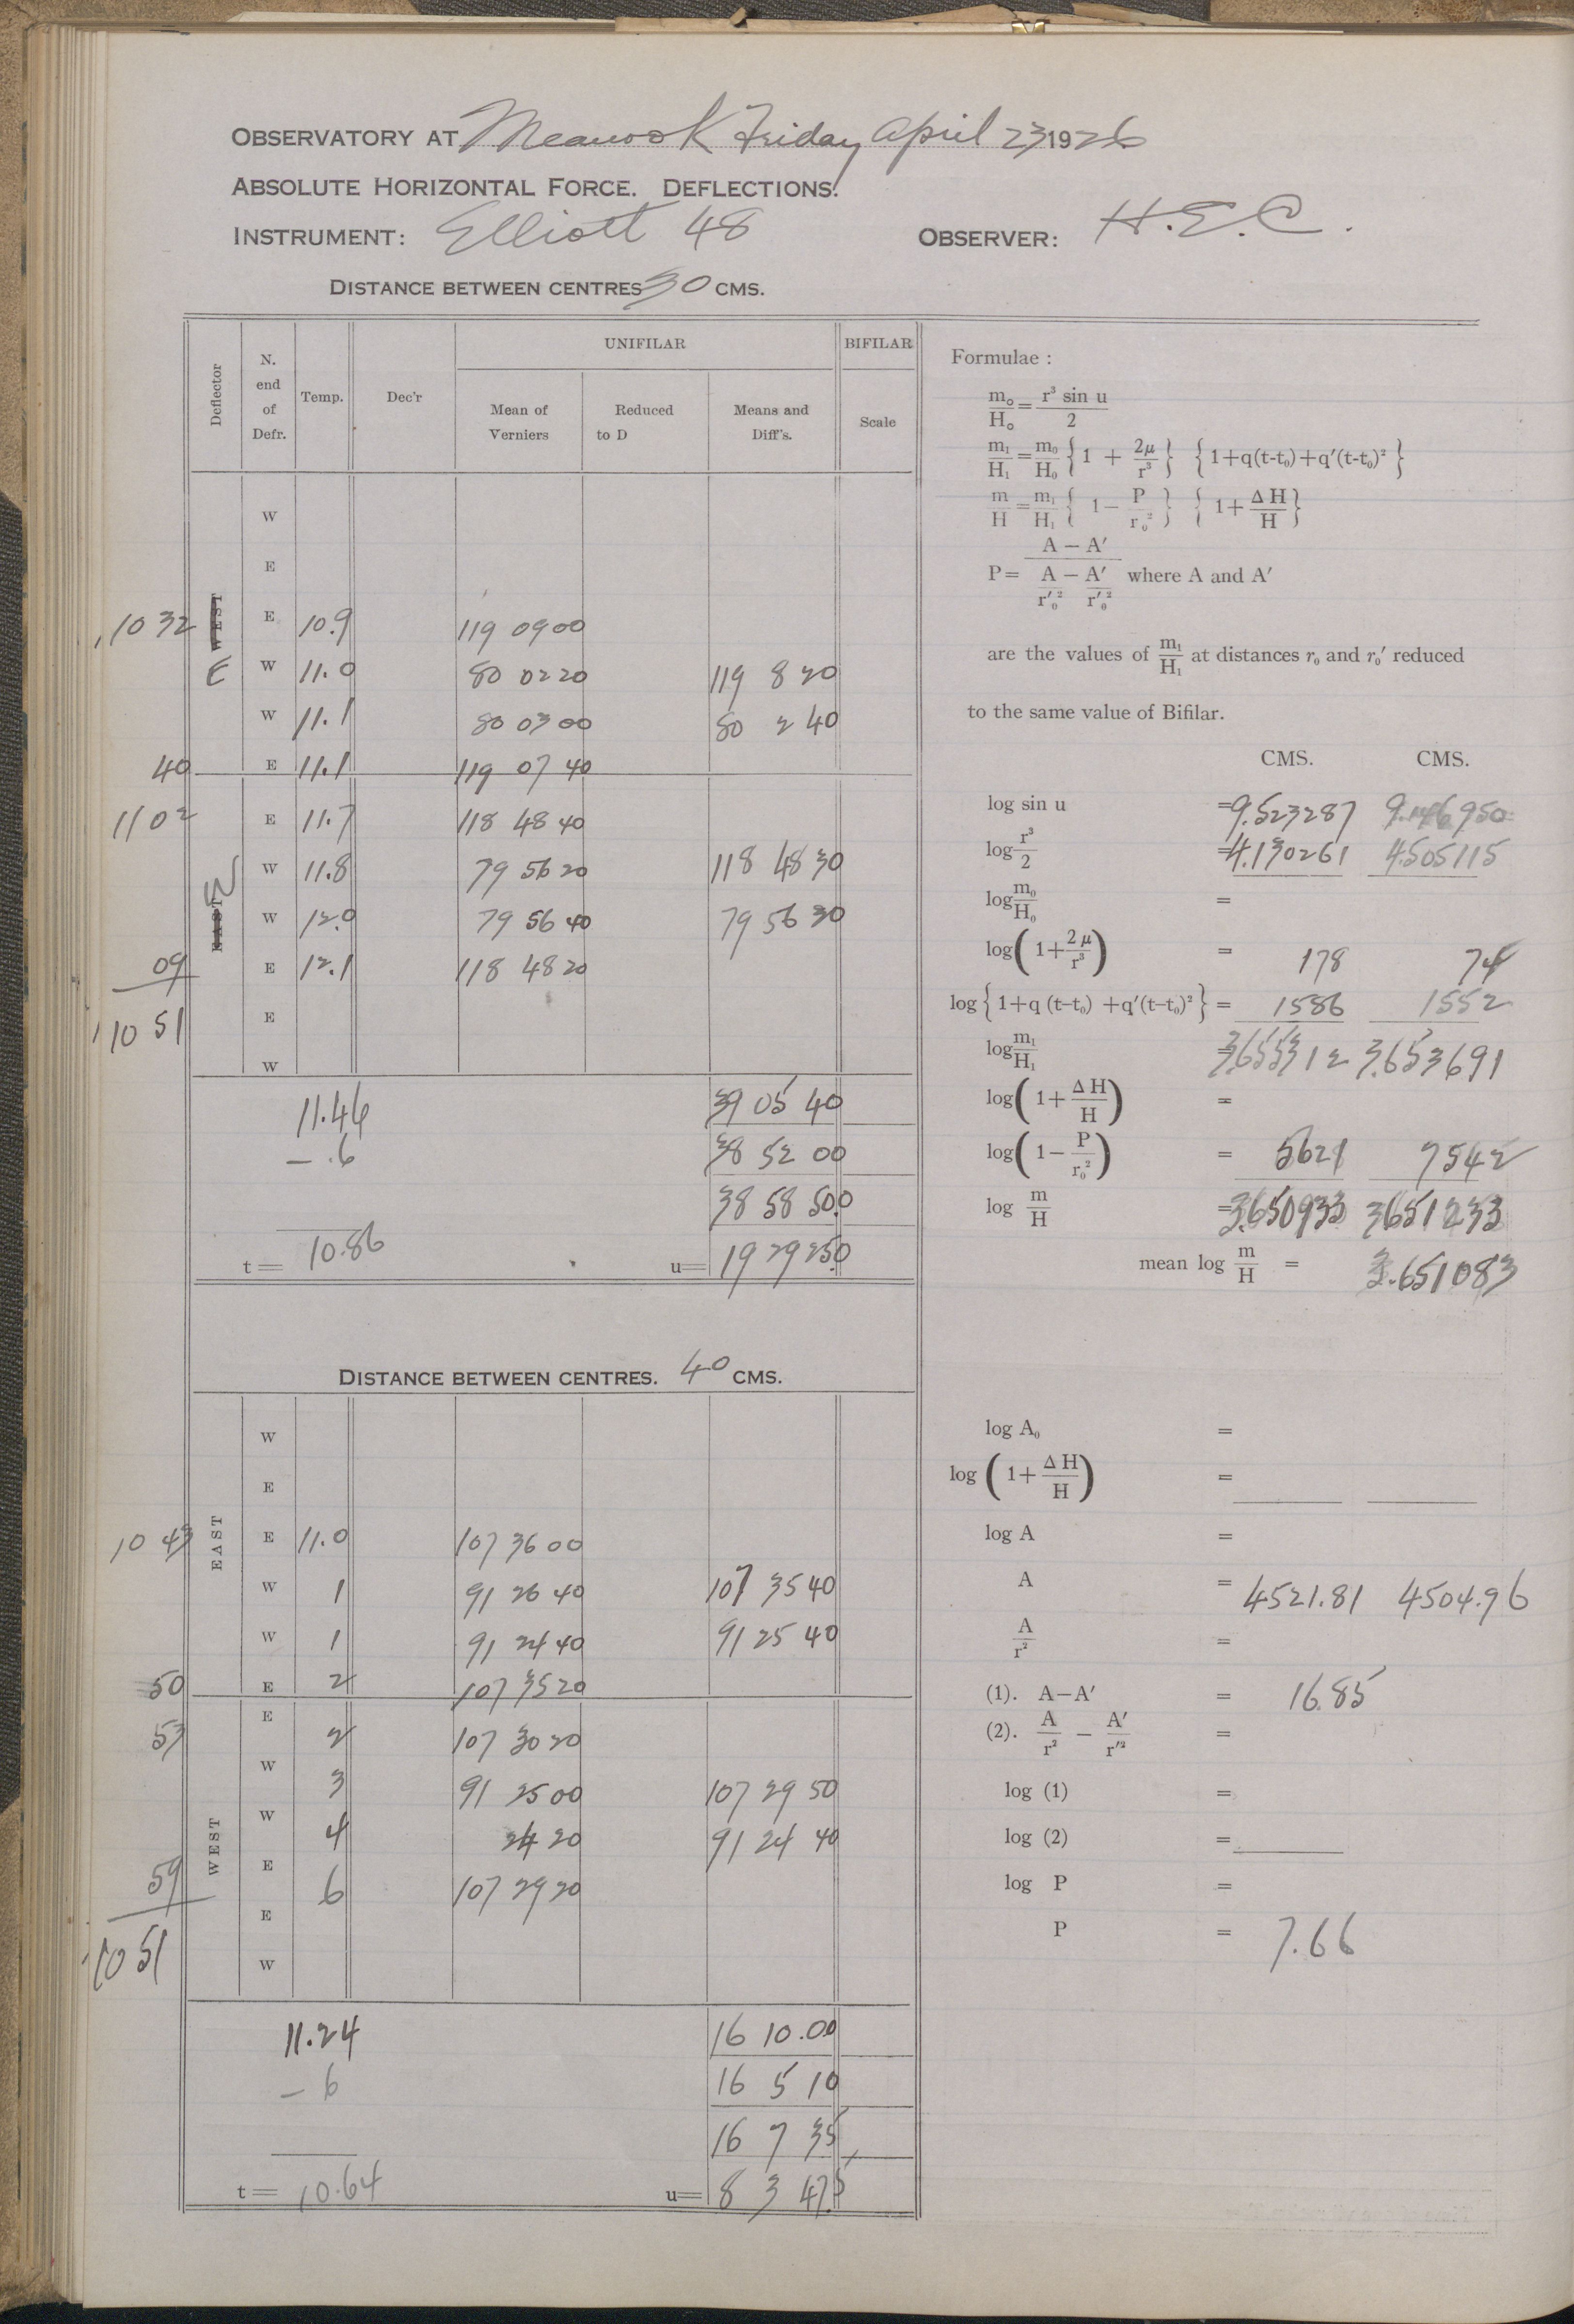 OBSERVATORY AT Meanook Friday April 23 1926
ABSOLUTE HORIZONTAL FORCE. DEFLECTIONS.
INSTRUMENT: Elliott 48 OBSERVER: H.E.C.
DISTANCE BETWEEN CENTRES 30 CMS.
Deflector N. end of Defr. Temp. Dec'r UNIFILAR Mean of Verniers Reduced to D Means and Diff's. BIFILAR Scale
W
E
10 32 WEST E E 10.9 119 09 00
W 11.0 80 02 20 119 8 20
W 11.1 80 03 00 80 2 40
40 E 11.1 119 07 40
11 02 E 11.7 118 48 40
EAST W W 11.8 79 56 20 118 48 30
W 12.0 79 56 40 79 56 30
09 E 12.1 118 48 20
10 51 E
W
11.46 39 05 40
- .6 38 52 00
38 58 50.0
t= 10.86 u= 19 29 25.0
Formulae :
m₀/H₀ = r³ sin u / 2
m₁/H₁ = m₀/H₀ {1 + 2μ/r³} {1+q(t-t₀)+q′(t-t₀)²}
m/H = m₁/H₁ {1 - P/r₀²} {1+ ΔH/H}
P = A - A′ / A/r′₀² - A′/r′₀² where A and A′
are the values of m₁/H₁ at distances r₀ and r₀′ reduced
to the same value of Bifilar.
CMS. CMS.
log sin u = 9.523287 9.146950
log r³/2 = 4.130261 4.505115
log m₀/H₀ =
log (1+ 2μ/r³) = 178 74
log {1+q (t-t₀) +q′(t-t₀)²} = 1586 1552
log m₁/H₁ = 3.655312 3.653691
log (1+ ΔH/H) =
log (1- P/r₀²) = 5621 7542
log m/H = 3.650933 3651233
mean log m/H = 3.651083
DISTANCE BETWEEN CENTRES. 40 CMS.
W
E
10 43 EAST E 11.0 107 36 00
W 1 91 26 40 107 35 40
W 1 91 24 40 91 25 40
50 E 2 107 35 20
53 E 2 107 30 20
W 3 91 25 00 107 29 50
WEST W 4 24 20 91 24 40
59 E 6 107 29 20
E
10 51 W
11.24 16 10.00
- 6 16 5 10
16 7 35
t= 10.64 u= 8 3 47.5
log A₀ =
log (1+ ΔH/H) =
log A =
A = 4521.81 4504.96
A/r² =
(1). A-A′ = 16.85
(2). A/r² - A′/r′² =
log (1) =
log (2) =
log P =
P = 7.66